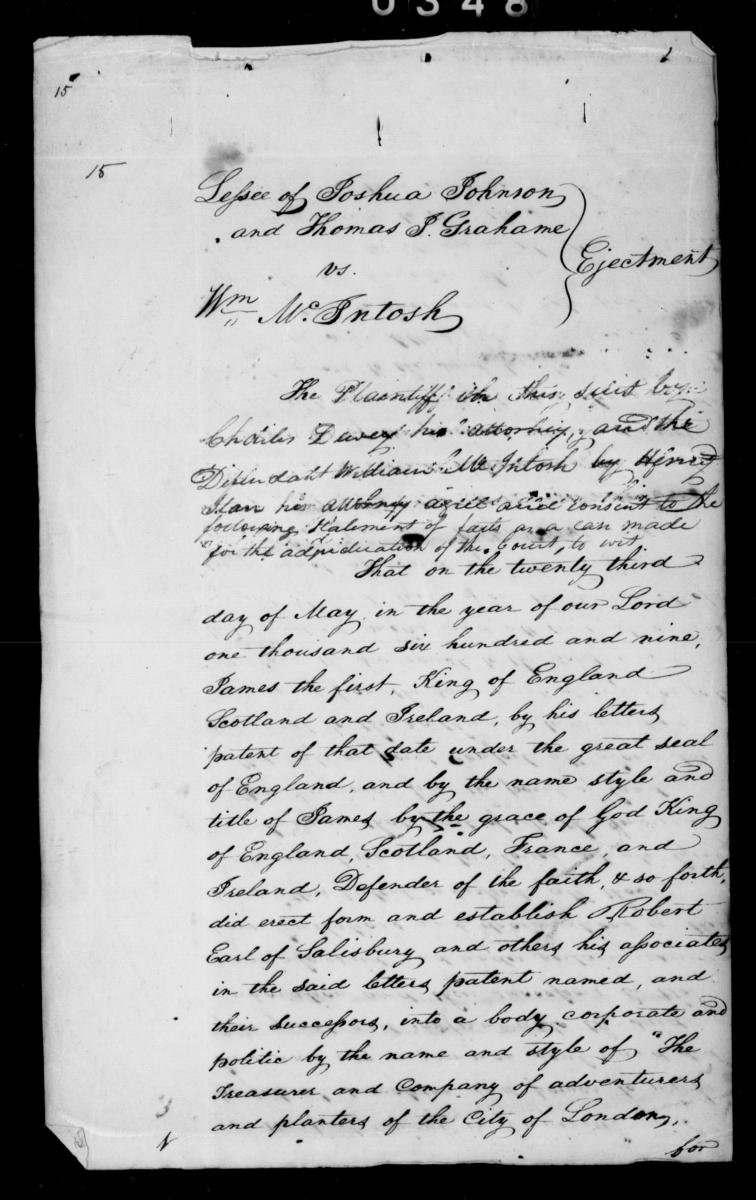 0348
15
1
15
Lessee of Joshua Johnson
and Thomas J. Grahame
Ejectment
vs.
Wm McIntosh
The Plaintiff in this suit by
Charles Dewey his attorney, and the
Defendant William McIntosh by Henry
his attorney agree and consent to the
following Statement of facts as a case made
for the adjudication of the Court, to wit
That on the twenty third
day of May, in the year of our Lord
one thousand six hundred and nine,
James the first, King of England
Scotland and Ireland, by his letters
patent of that date under the great seal
of England, and by the name style and
title of James by the grace of God King
of England, Scotland, France, and
Ireland, Defender of the faith, & so forth,
did erect form and establish Robert
Earl of Salisbury and others his associates
in the said letters patent named, and
their successors, into a body corporate and
politic by the name and style of "The
Treasurer and Company of adventurers
and planters of the City of London,
for